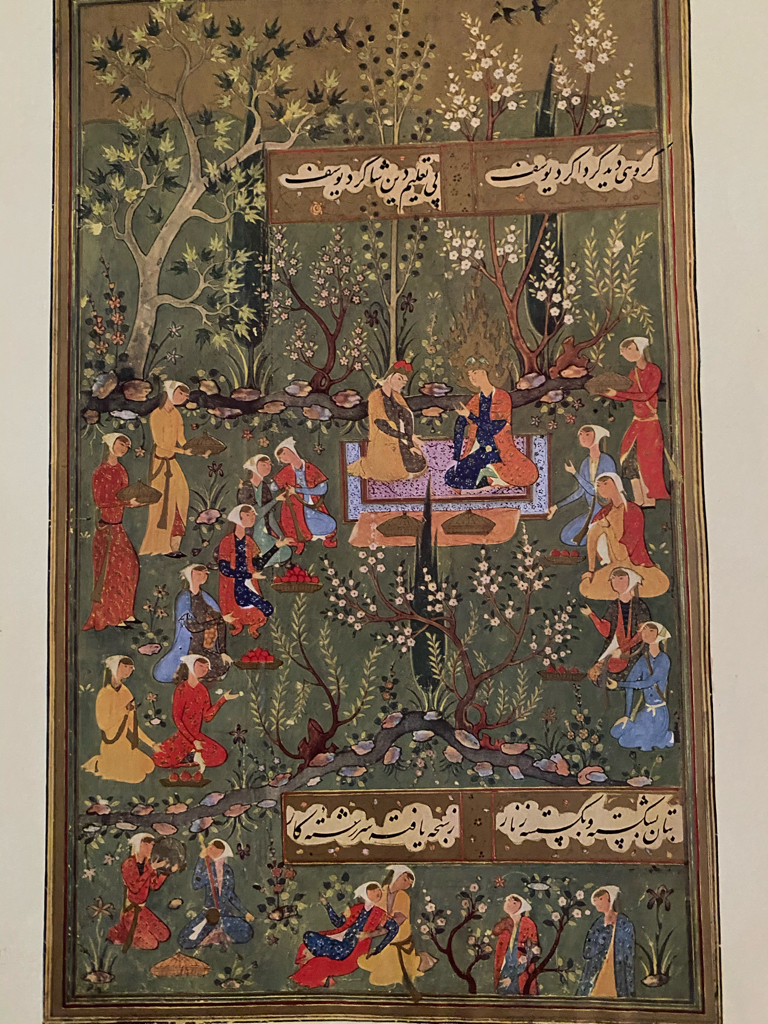 گروهی دید گرداگرد یوسف پی تعلیم دین شاگرد یوسف
بتان بشکسته و بگسسته زنار ز سبحه یافته سررشته کار